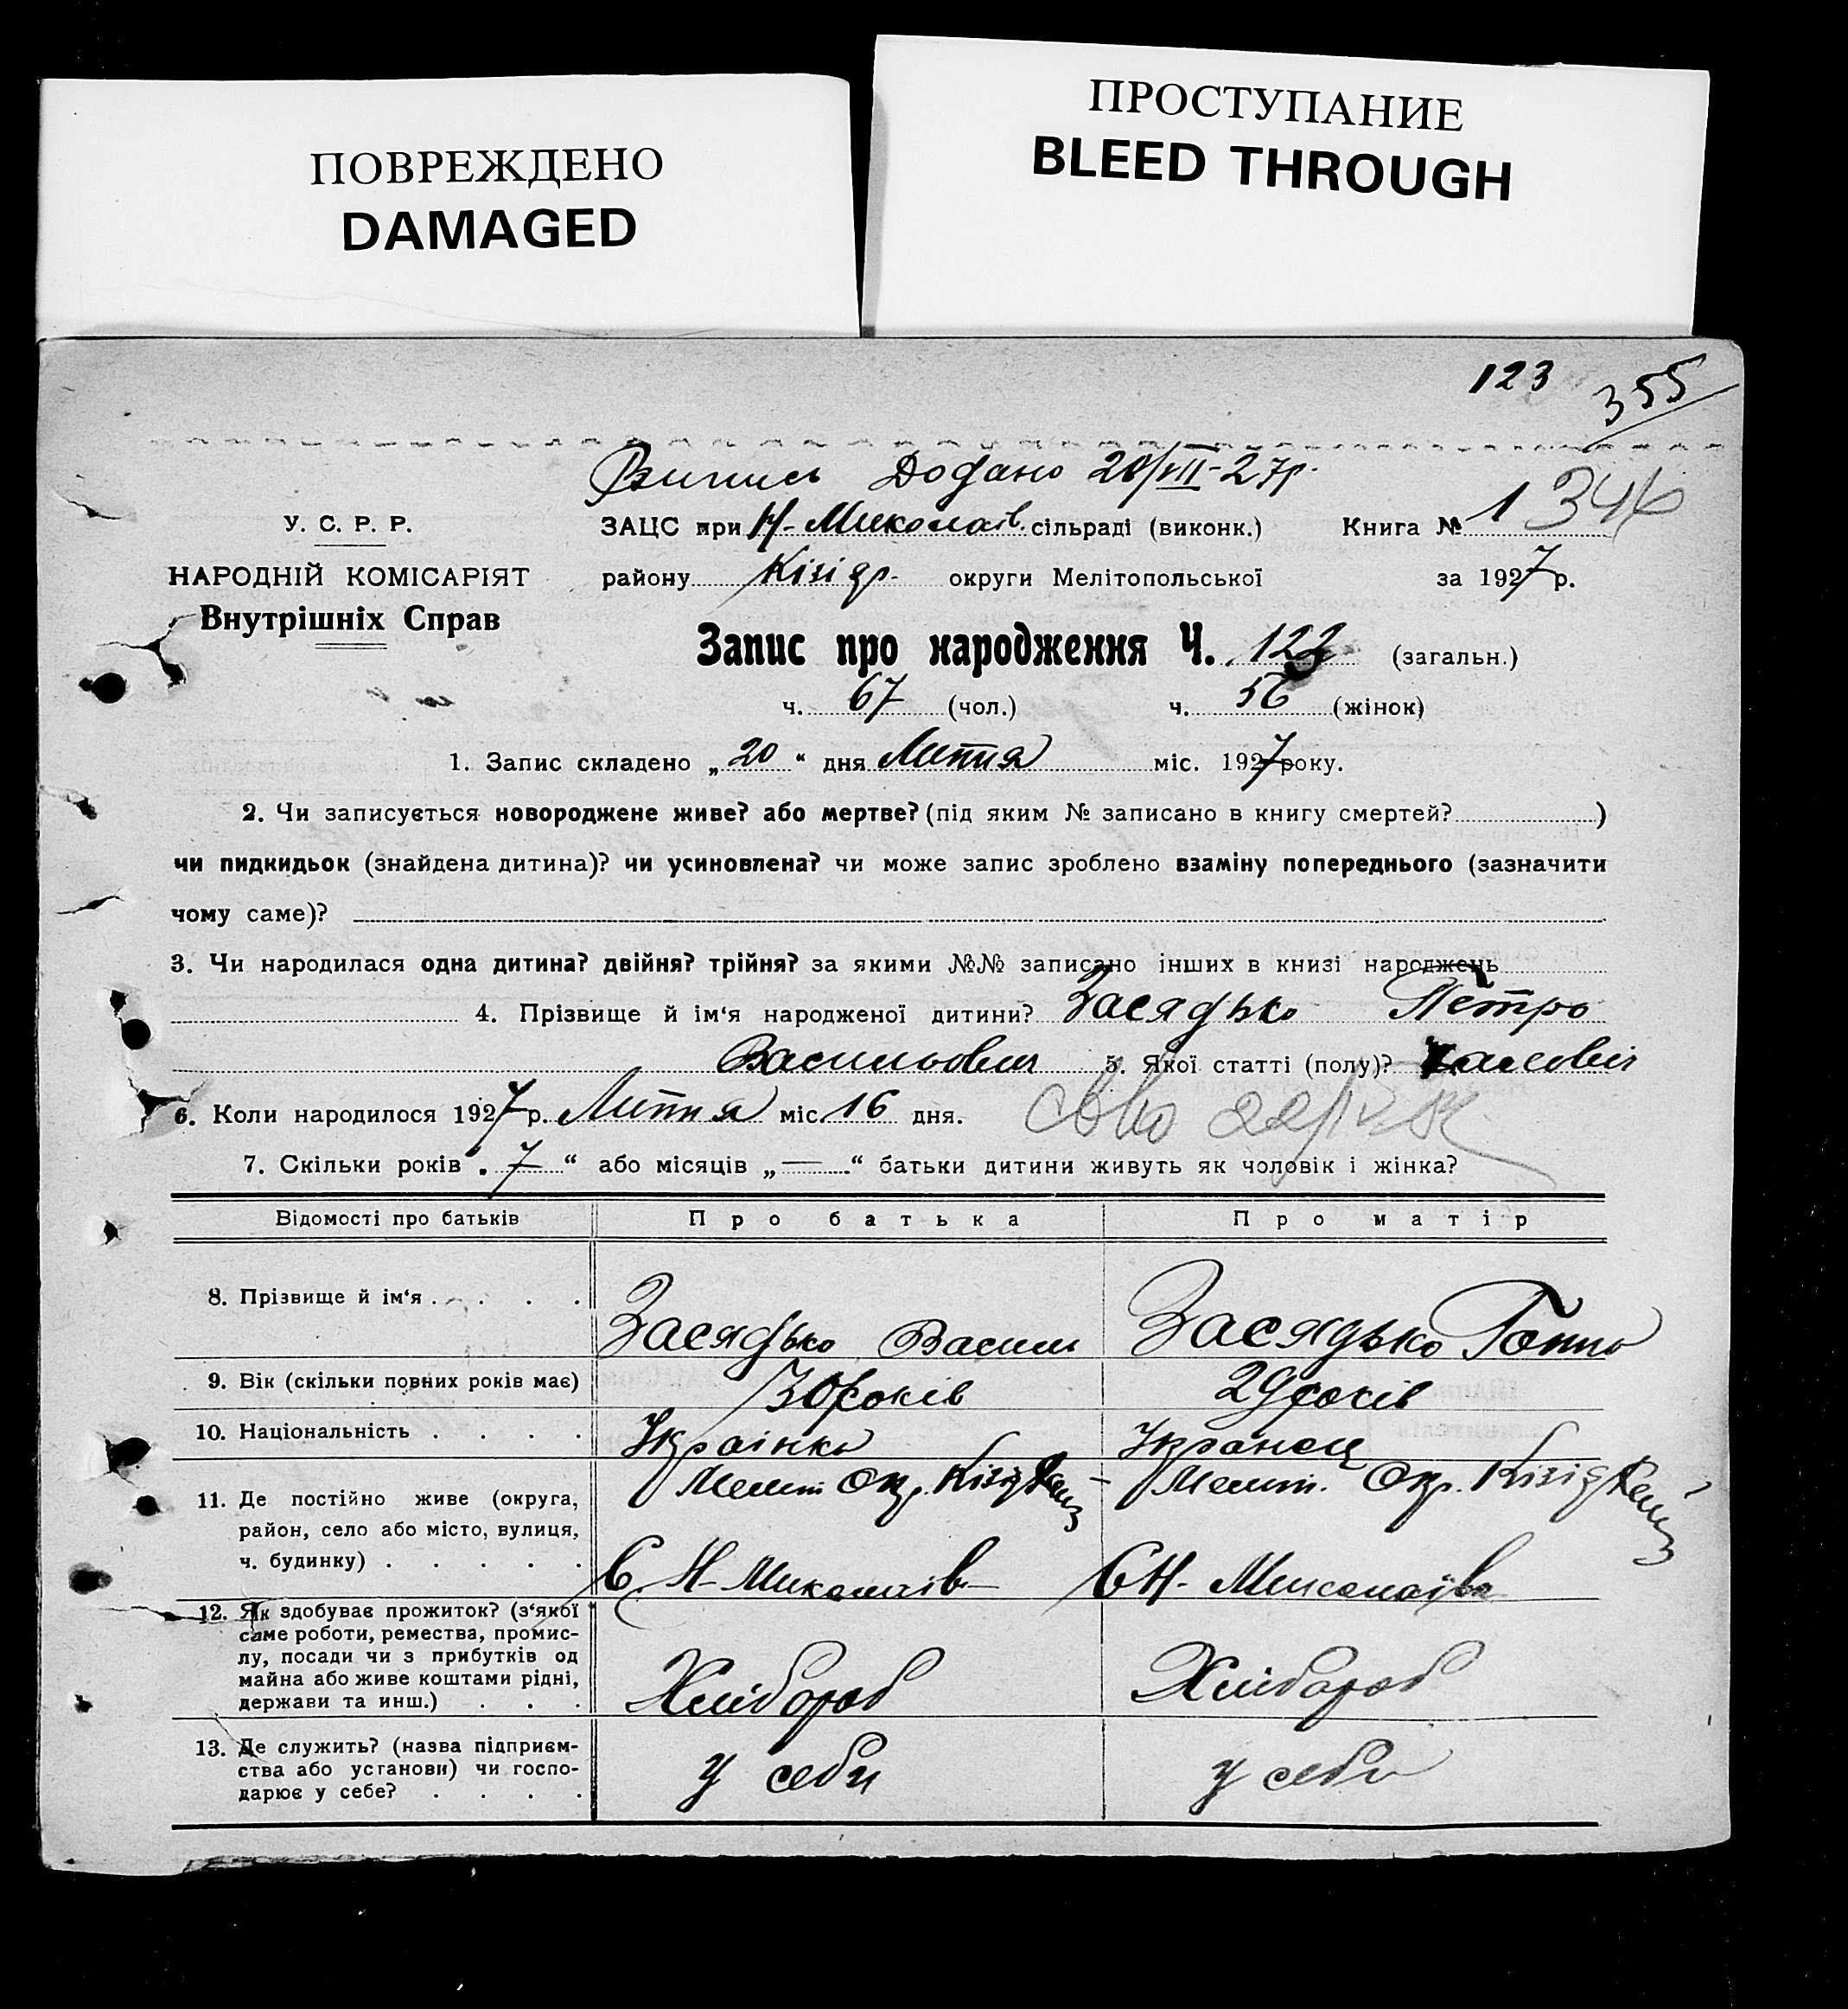 ПОВРЕЖДЕНО
DAMAGED
ПРОСТУПАНИЕ
BLEED THROUGH
123
355
Випись додано 20/VII-27р.
У. С. Р. Р.
НАРОДНІЙ КОМІСАРІЯТ
Внутрішніх Справ
ЗАЦС при Н-Миколаїв. сільраді (виконк.) Книга № 1 346
району Кізіяр. округи Мелітопольської за 1927 р.
Запис про народження Ч. 122 (загальн.)
ч. 67 (чол.) ч. 56 (жінок)
1. Запис складено „20“ дня Липня міс. 1927 року.
2. Чи записується новороджене живе? або мертве? (під яким № записано в книгу смертей? )
чи пидкидьок (знайдена дитина)? чи усиновлена? чи може запис зроблено взаміну попереднього (зазначити
чому саме)?
3. Чи народилася одна дитина? двійня? трійня? за якими №№ записано інших в книзі народжень
4. Прізвище й ім‘я народженої дитини? Засядько Петро
Васильович 5. Якої статті (полу)?
6. Коли народилося 1927 р. Липня міс. 16 дня.
7. Скільки років „7“ або місяців „—“ батьки дитини живуть як чоловік і жінка?
Відомості про батьків Про батька Про матір
8. Прізвище й ім‘я . . . . Засядько Василь Засядько Ганна
9. Вік (скільки повних років має) 30 років 29 років
10. Національність . . . . Украінка Укранец
11. Де постійно живе (округа, Мелит. Окр. Кізіяр Мелит. Окр. Кізіяр
район, село або місто, вулиця,
ч. будинку) . . . . . С. Н-Миколаїв С Н-Миколаївка
12. Як здобуває прожиток? (з‘якої
саме роботи, ремества, промис-
лу, посади чи з прибутків од
майна або живе коштами рідні,
держави та инш.) . . . Хлібороб Хлібороб
13. Де служить? (назва підприєм-
ства або установи) чи госпо-
дарює у себе? . . . . у себи у себи